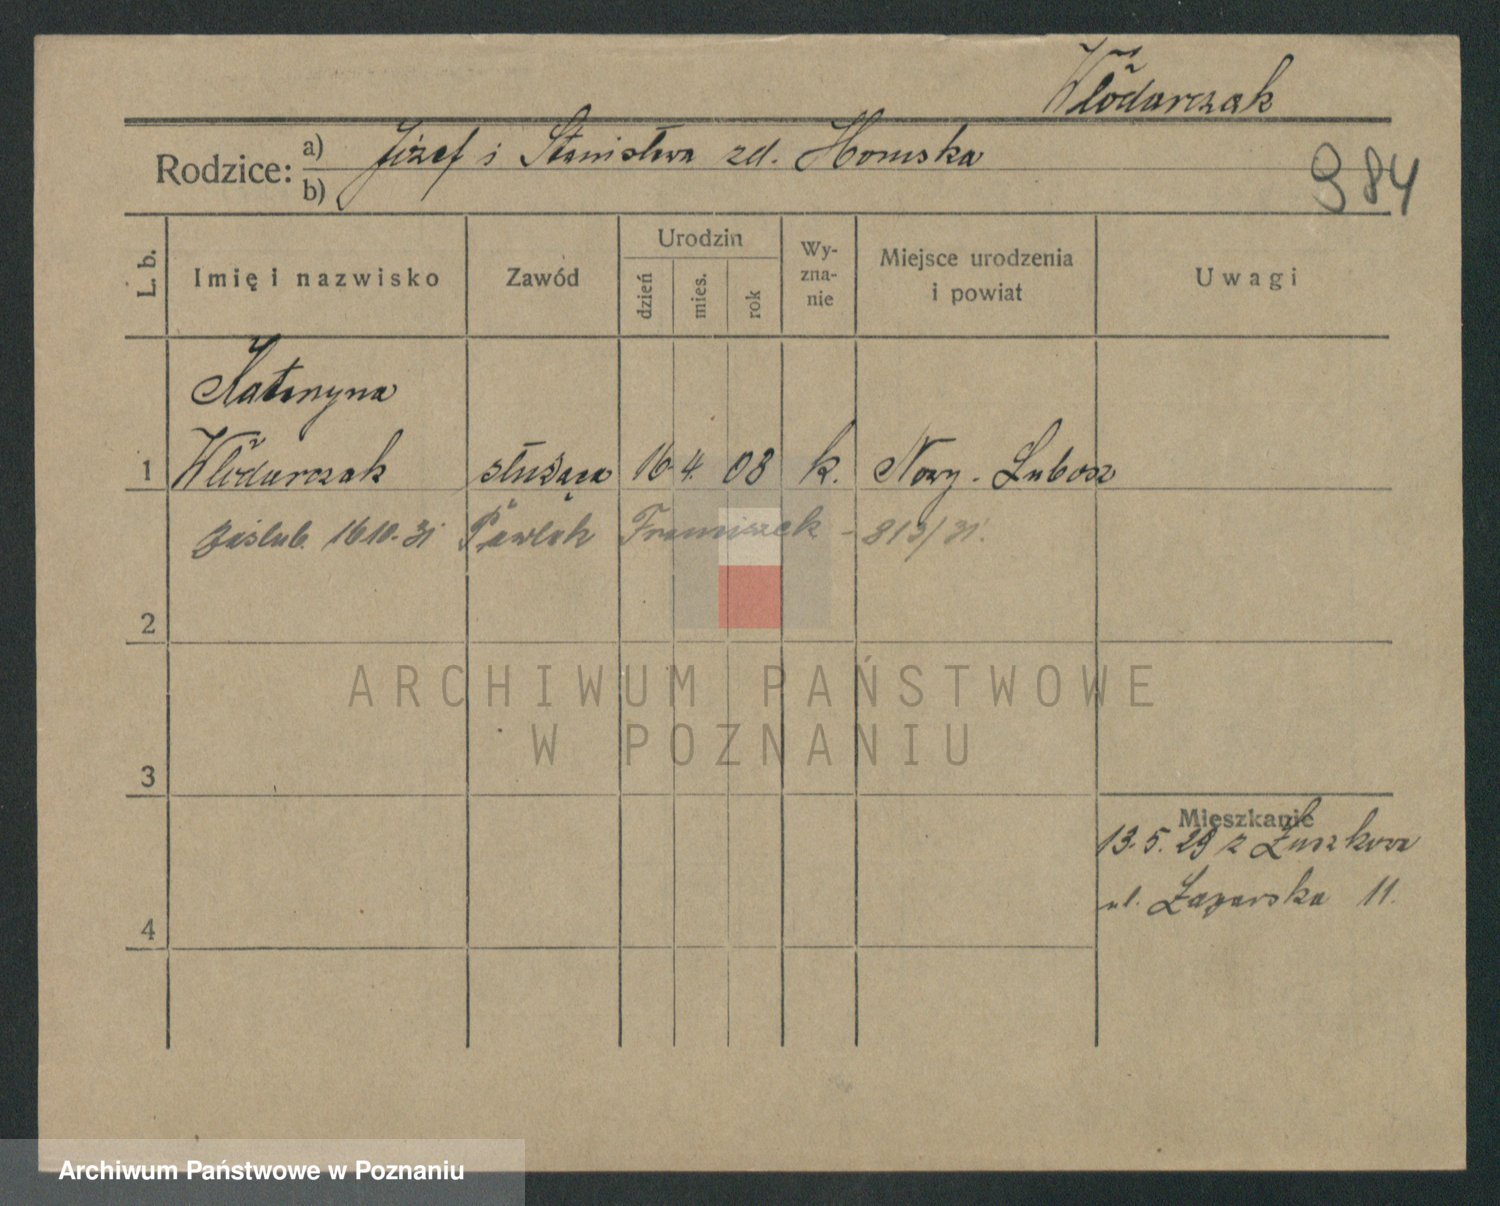 Włodarczak
Rodzice: a) Józef i Stanisława zd. Homska
b)
984
L. b.
Imię i nazwisko
Zawód
Urodzin
dzień
mies.
rok
Wy-
zna-
nie
Miejsce urodzenia
i powiat
Uwagi
Katarzyna
1 Włodarczak służąca 16 4. 08 k. Nowy-Lubosz
zaślub. 16 10. 31 Pawlak Franciszek - 813/31.
2
ARCHIWUM PAŃSTWOWE
W POZNANIU
3
Mieszkanie
13. 5. 29 z
ul. 11.
4
Archiwum Państwowe w Poznaniu